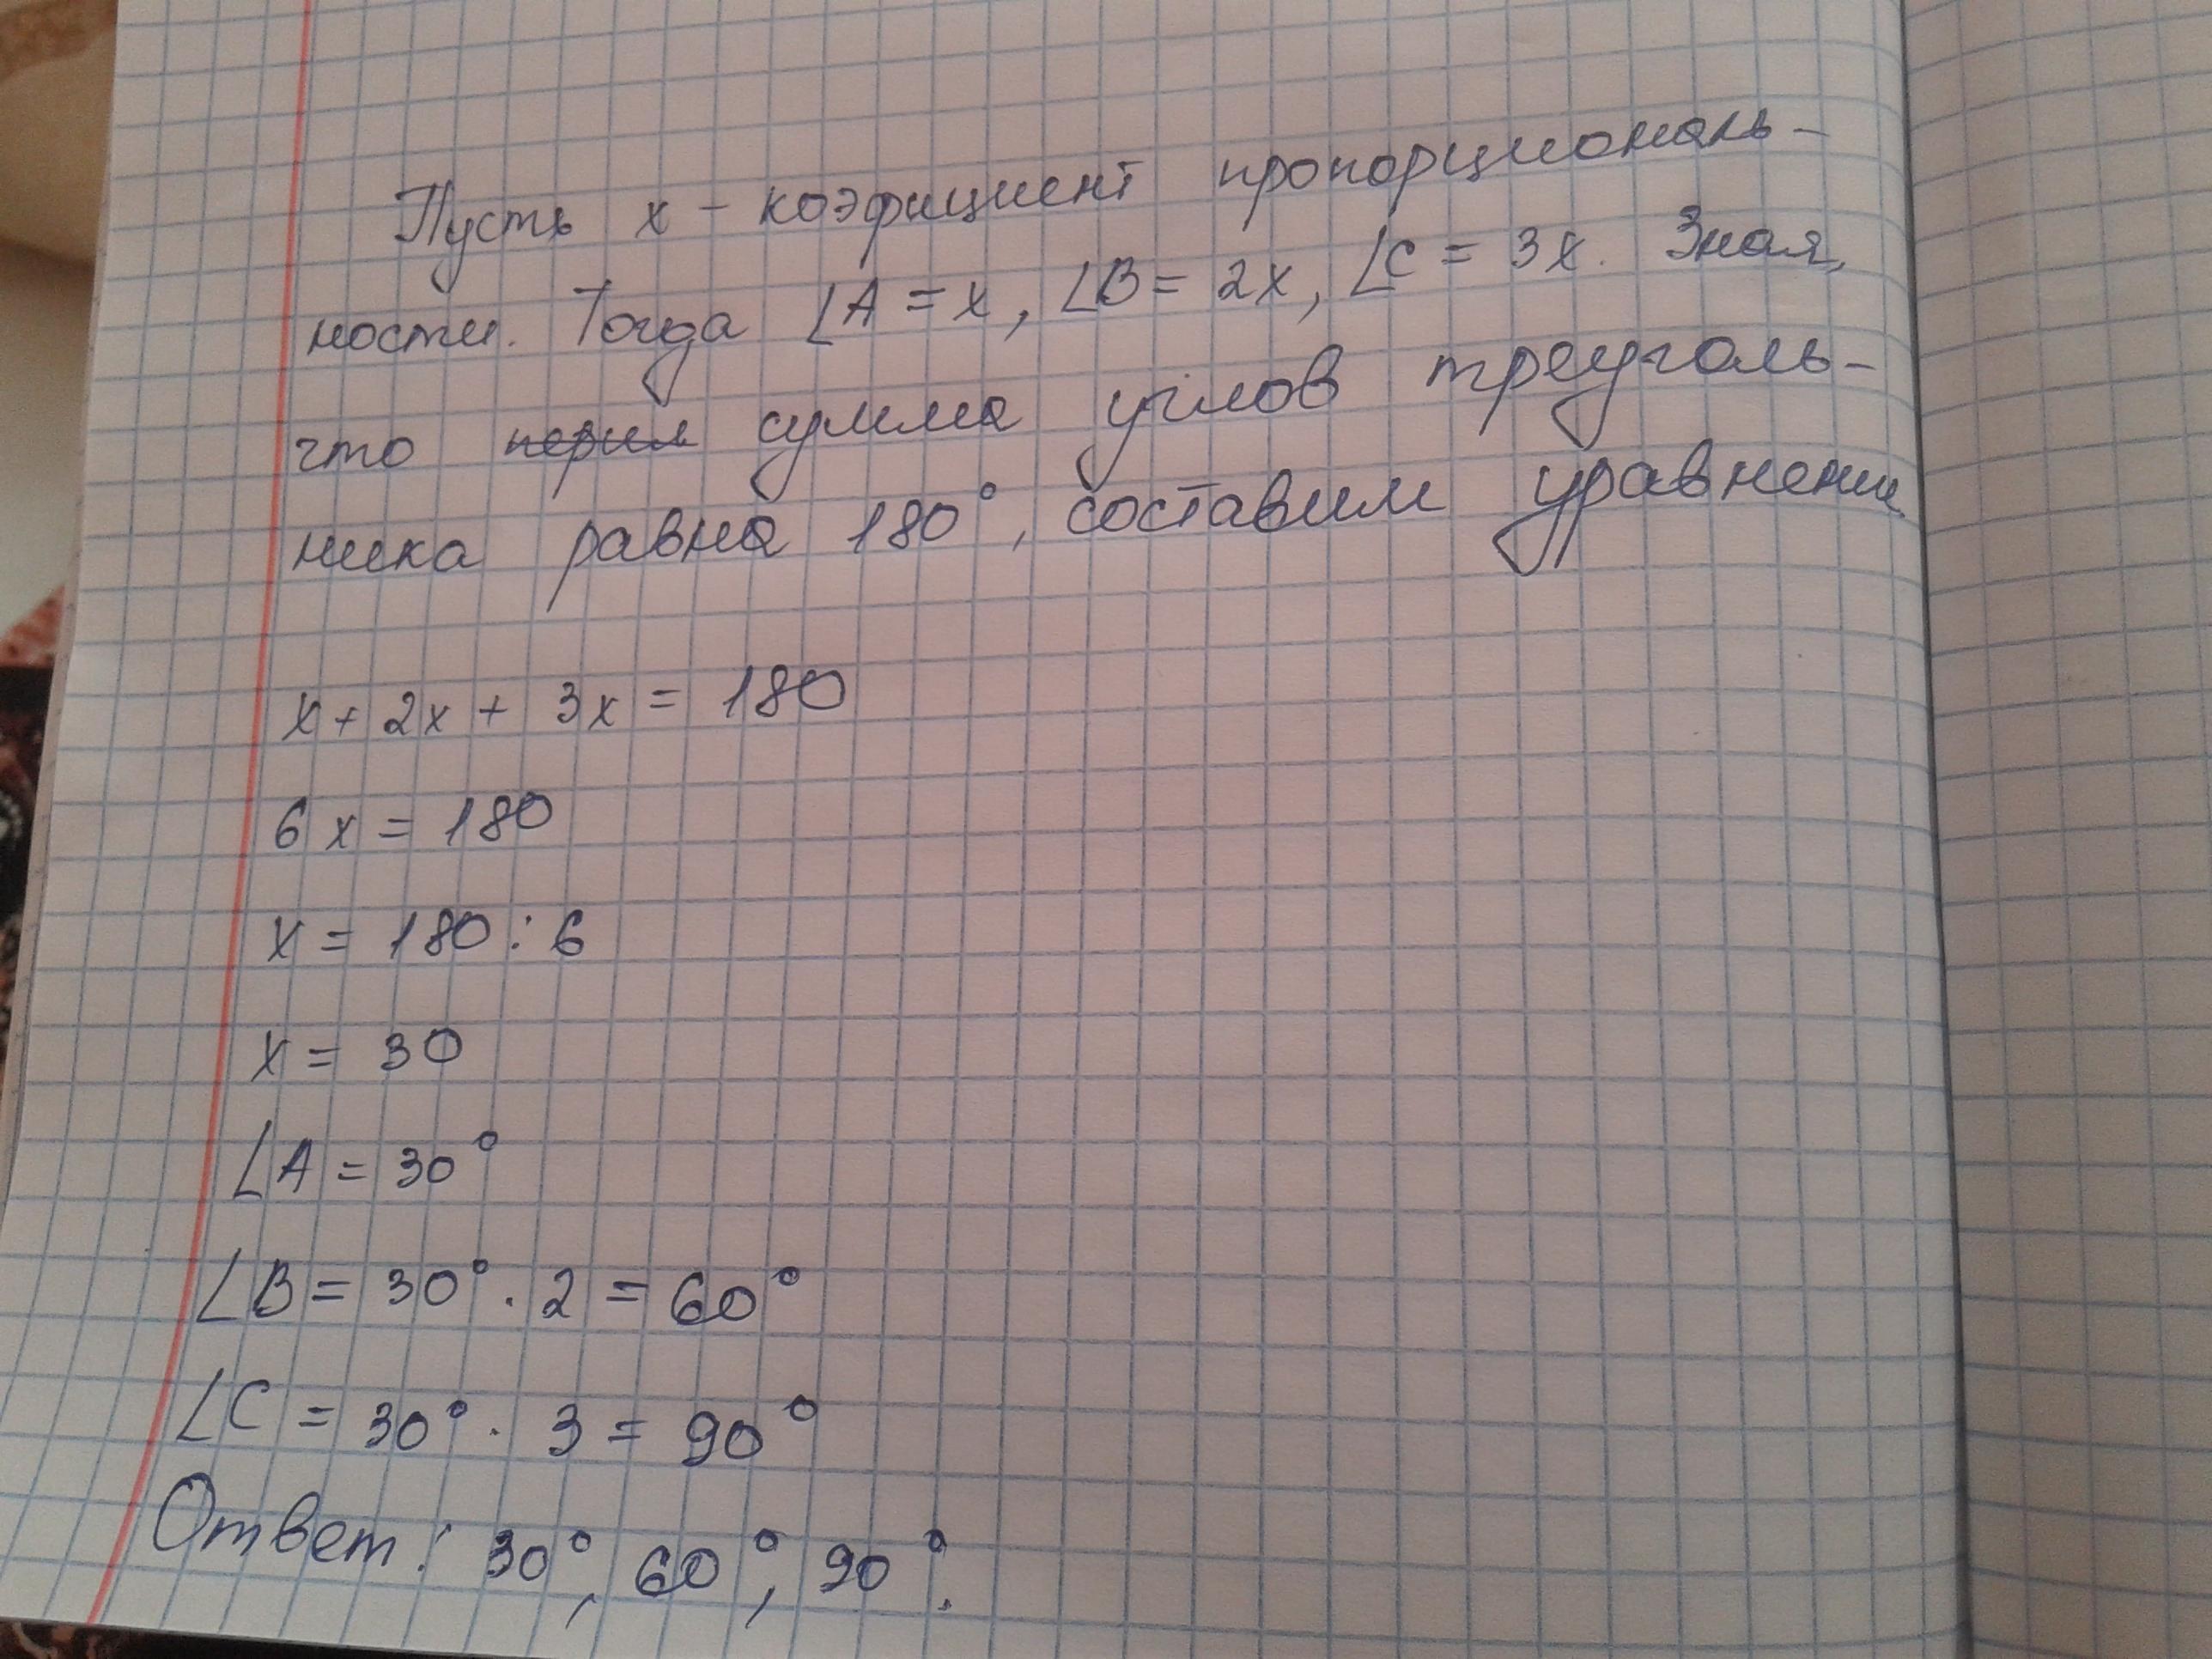 Пусть x - коэфициент пропорциональ-
ности. Тогда ∠A = x, ∠B = 2x, ∠C = 3x. Зная,
что перим сумма углов треуголь-
ника равна 180°, составим уравнение
x + 2x + 3x = 180
6x = 180
x = 180 : 6
x = 30
∠A = 30°
∠B = 30° · 2 = 60°
∠C = 30° · 3 = 90°
Ответ: 30°, 60°, 90°.